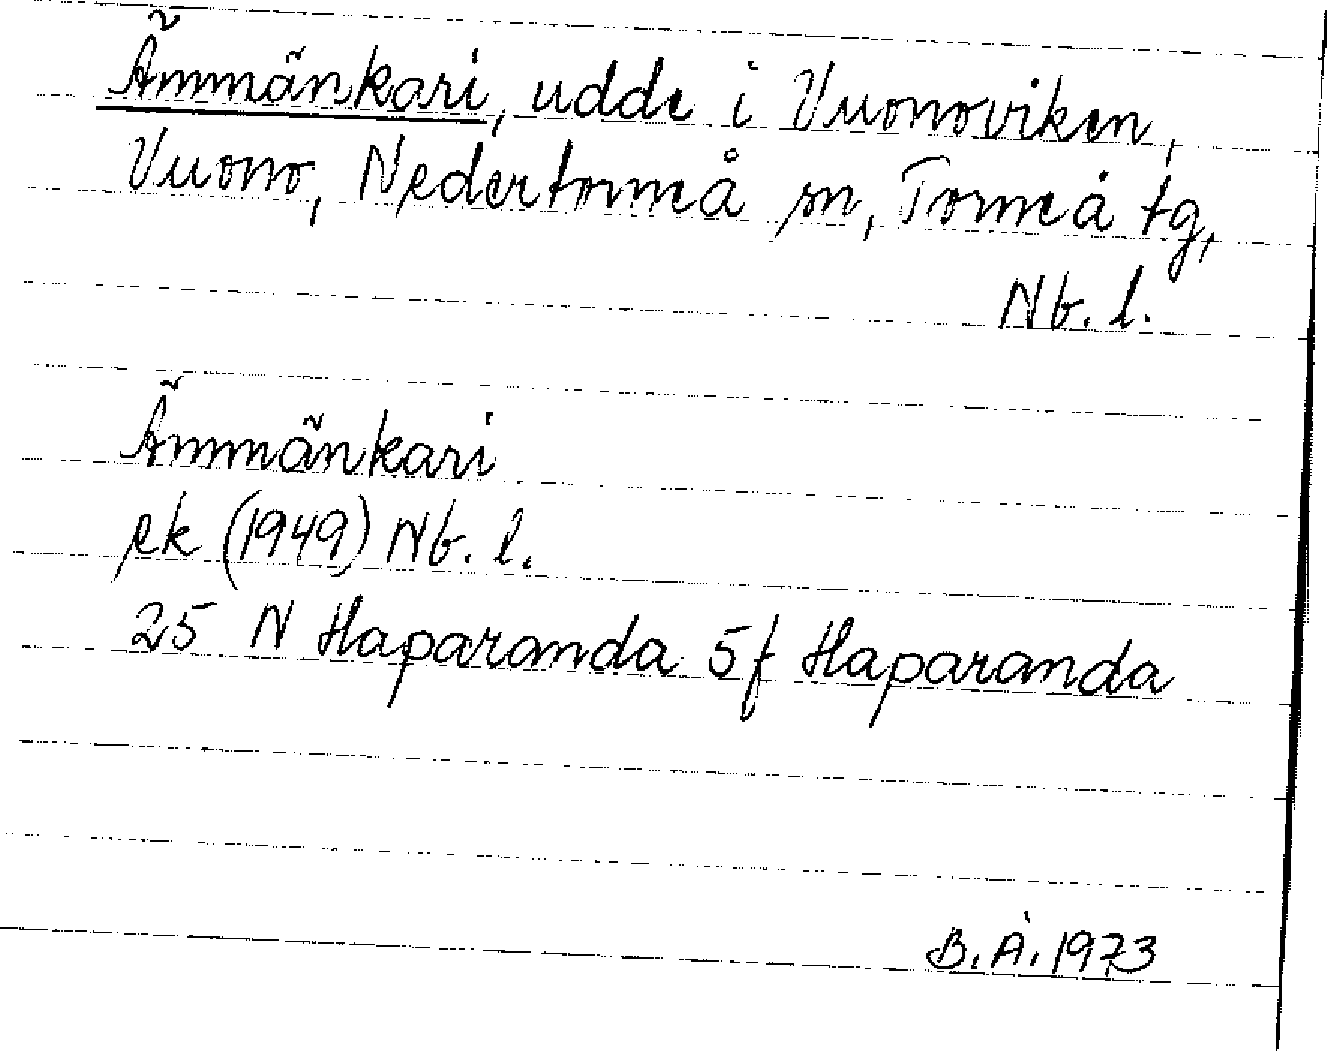 Ämmänkari, udde i Vuonoviken,
Vuono, Nedertorneå sn, Torneå tg,
Nb. l.
Ämmänkari
ek (1949) Nb. l.
25 N Haparanda 5f Haparanda
B. Å. 1973